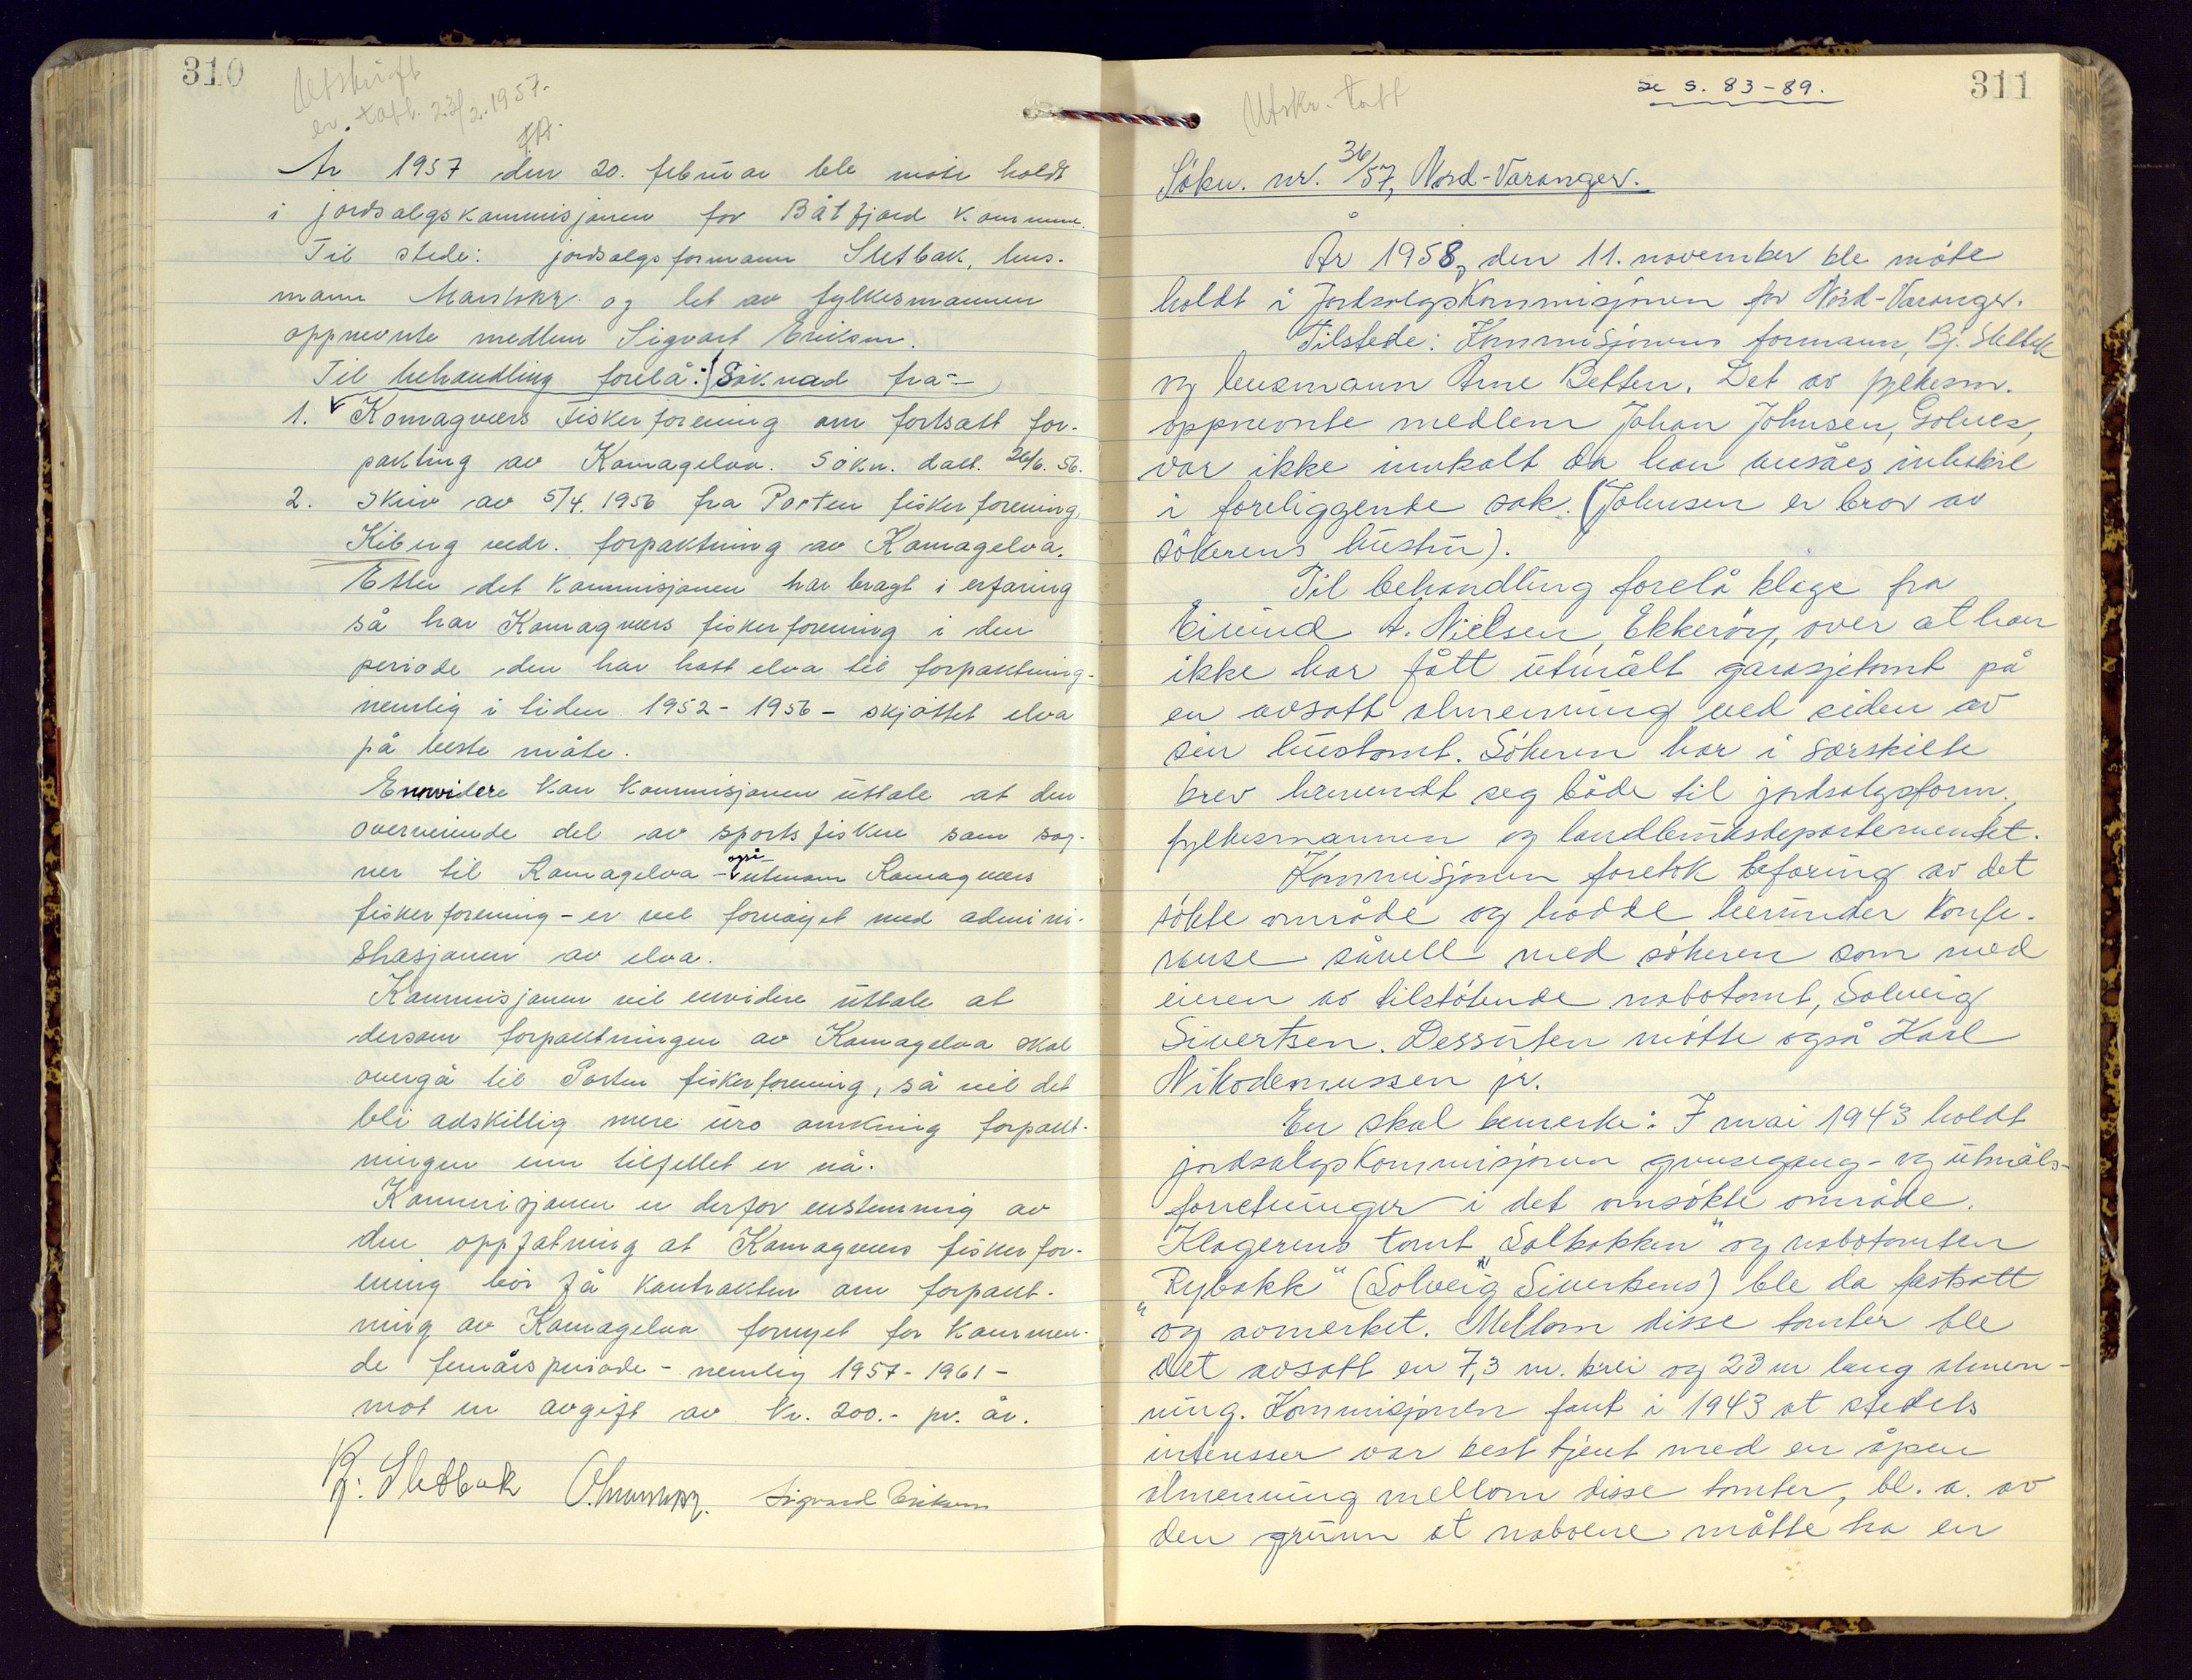 310
Utskrift
er. tatt. 23/2. 1957.
År 1957 den 20. februar ble möte holdt
i jordsalgskommisjonen for Båtfjord kommune.
Til stede: jordsalgsformann Sletbak, lens-
mann og det av fylkesmannen
oppnevnte medlem Sigvart Eriksen.
Til behandling forelå: Söknad fra -
1. Komagvers Fiskerforening om fortsatt for-
paktning av Komagelva. Søkn. dat. 26/6. 56.
2. Skriv av 5/4. 1956 fra Porten fiskerforening,
Kiberg vedr. forpaktning av Komagelva.
Etter det kommisjonen har bragt i erfaring
så har Komagvers fiskerforening i den
periode den har hatt elva til forpaktning -
nemlig i tiden 1952 - 1956 - skjöttet elva
på beste måte.
Ennvidere kan kommisjonen uttale at den
overveiende del av sportsfiskere som sog-
ner til Komagelva - også utenom Komagvers
fiskerforening - er vel fornöyet med admini-
strasjonen av elva.
Kommisjonen vil envidere uttale at
dersom forpaktningen av Komagelva skal
overgå til Porten fiskerforening, så vil det
bli adskillig mere uro omkring forpakt-
ningen enn tilfellet er nå.
Kommisjonen er derfor enstemmig av
den oppfatning at Komagvers fiskerfor-
ening bör få kontrakten om forpakt-
ning av Komagelva fornyet for kommen-
de femårsperiode - nemlig 1957 - 1961 -
mot en avgift av kr. 200.- pr. år.
Bj. Sletbak Sigvard Eriksen
311
Utskr. tatt
se s. 83-89.
Søkn. nr. 36/57, Nord-Varanger.
År 1958, den 11. november ble möte
holdt i jordsalgskommisjonen for Nord-Varanger.
Tilstede: Kommisjonens formann, Bj. Sletbak
og lensmann Arne Betten. Det av fylkesm.
oppnevnte medlem Johan Johnsen, Golnes,
var ikke innkalt da han ansåes inhabil
i foreliggende sak. (Johnsen er bror av
sökerens hustru).
Til behandling forelå klage fra
Eivind A. Nielsen, Ekkeröy, over at han
ikke har fått utmålt garasjetomt på
en avsatt almenning ved siden av
sin hustomt. Sökeren har i særskilte
brev henvendt seg både til jordsalgsform.,
fylkesmannen og landbruksdepartementet.
Kommisjonen foretok befaring av det
sökte område og hadde herunder konfe-
ranse såvell med sökeren som med
eieren av tilstötende nabotomt, Solveig
Sivertsen. Dessuten mötte også Karl
Nikodemussen jr.
En skal bemerke: 7 mai 1943 holdt
jordsalgskommisjonen grensegang- og utmåls-
forretninger i det omsökte område.
Klagerens tomt „Solbakken" og nabotomten
„Rybakk" (Solveig Sivertsens) ble da fastsatt
og avmerket. Mellom disse tomter ble
det avsatt en 7,3 m. brei og 23 m lang almen-
ning. Kommisjonen fant i 1943 at stedets
interesser var best tjent med en åpen
almenning mellom disse tomter, bl. a. av
den grunn at naboene måtte ha en